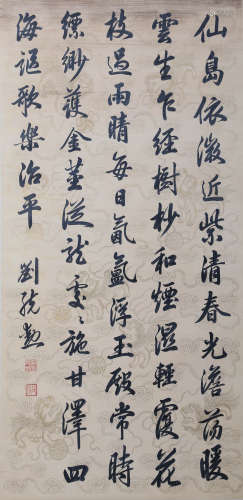 仙島依微近紫清春光澹蕩暖
雲生乍經樹杪和煙濕輕覆花
枝過雨晴每日氤氳浮玉殿常時
縹緲護金莖從龍處處施甘澤四
海謳歌樂治平
劉統勳